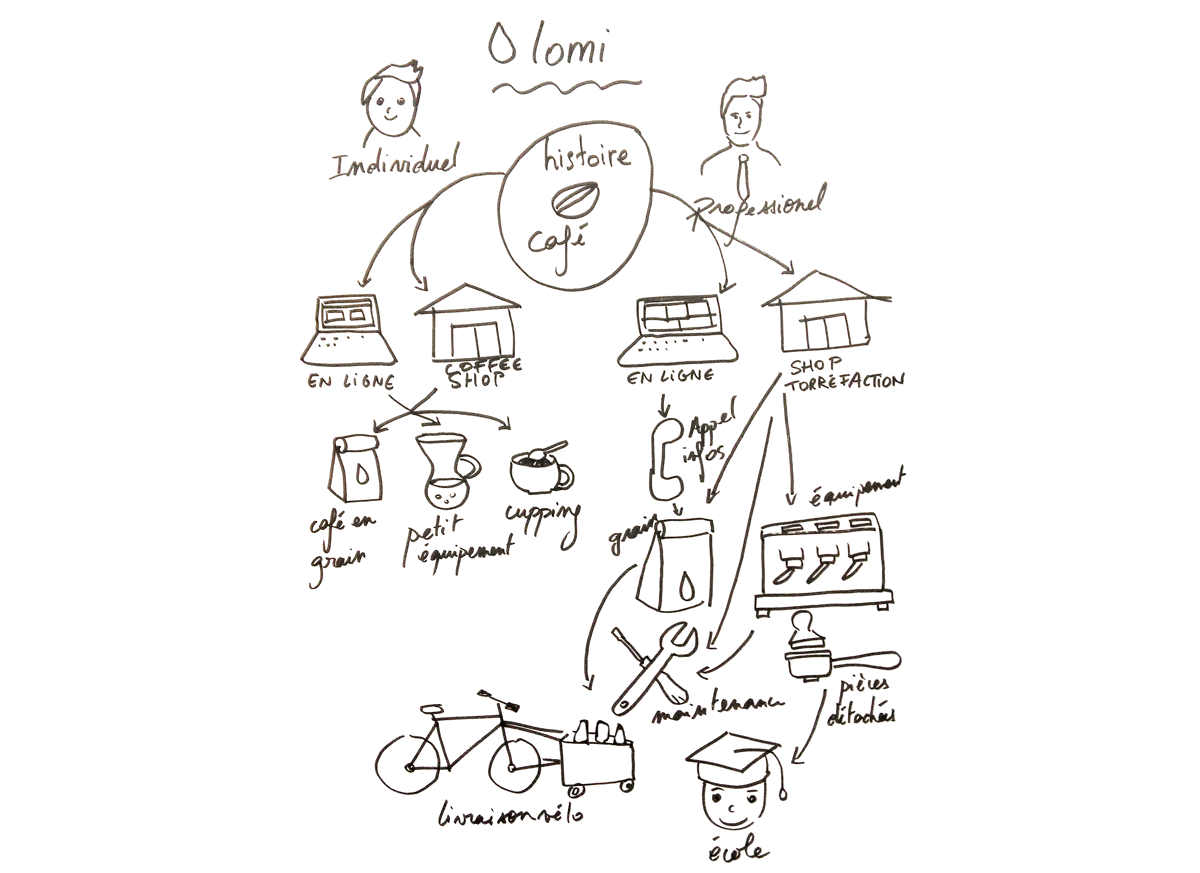 lomi
Individuel
histoire
café
Professionel
EN LIGNE
COFFEE
SHOP
EN LIGNE
SHOP
TORRÉFACTION
Appel
infos
café en
grain
petit
équipement
cupping
grain
équipement
maintenance
pièces
détachées
livraison vélo
école